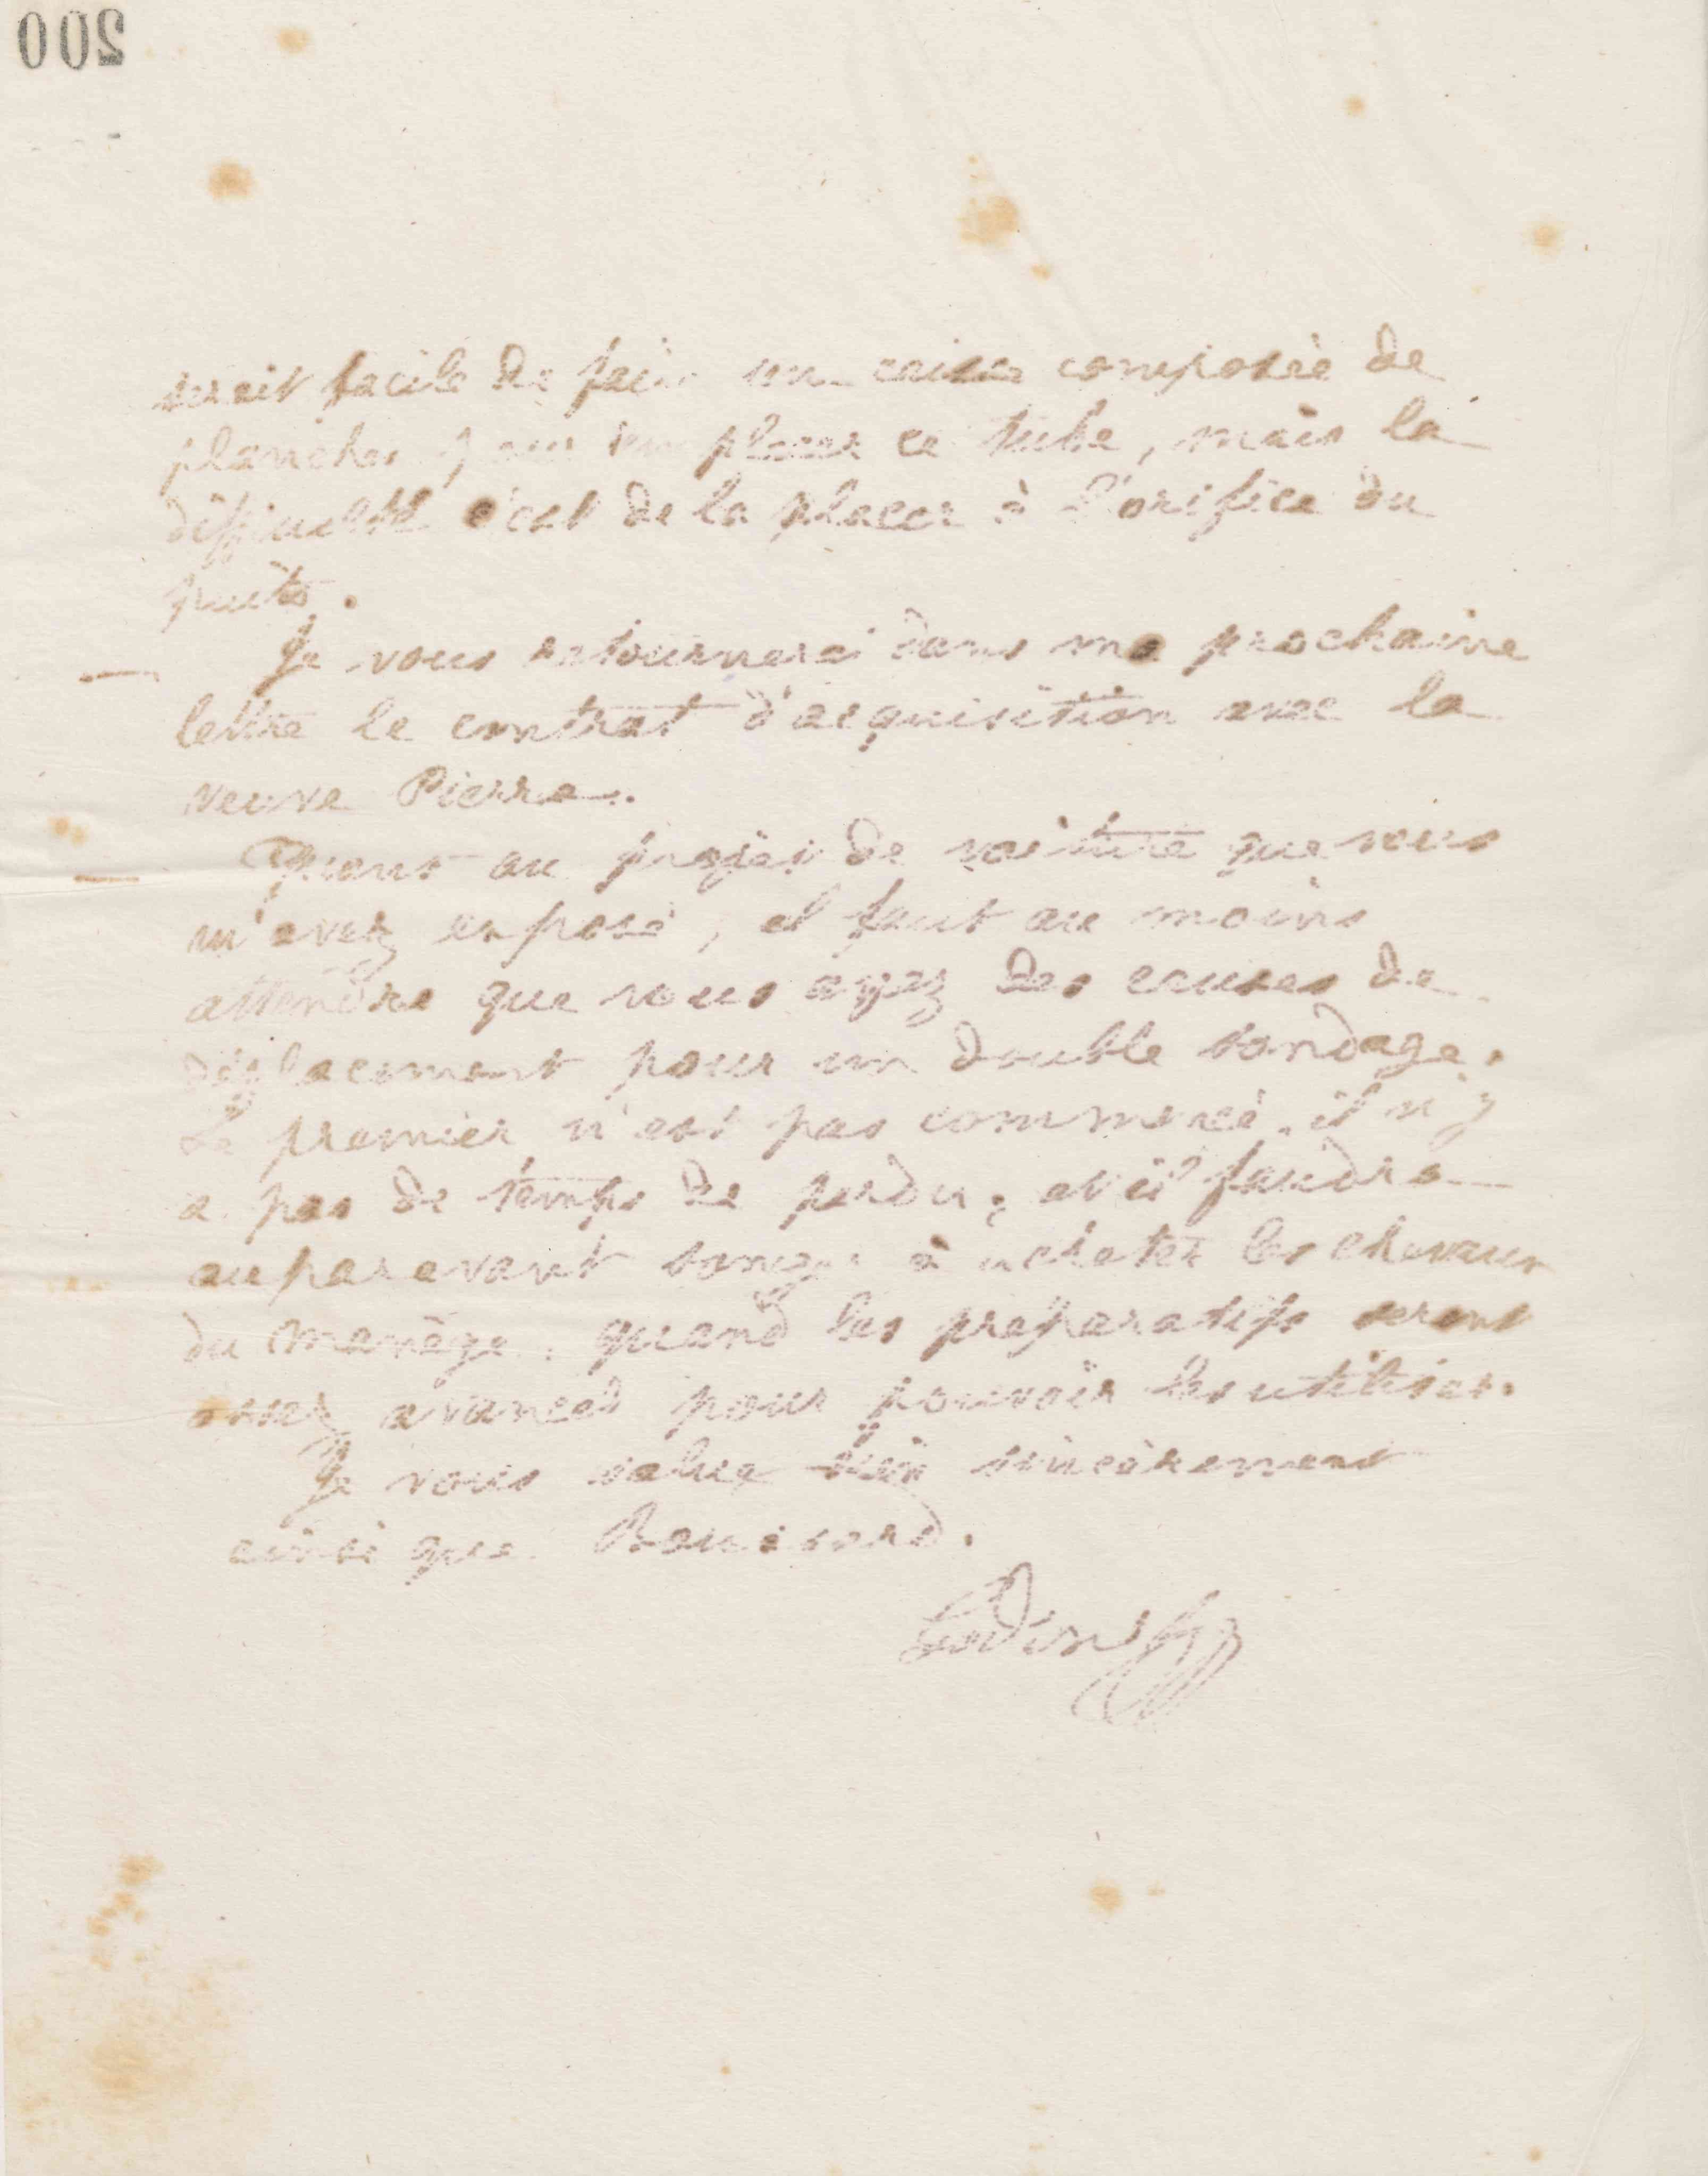 200
serait facile de faire une caisse composée de
planches pour remplacer ce tube, mais la
difficulté c'est de la placer à l'orifice du
puits.
Je vous retournerai dans ma prochaine
lettre le contrat d'acquisition avec la
veuve Pierre.
Quant au projet de voiture que vous
m'avez exposé, il faut au moins
attendre que vous ayez des causes de
déplacement pour un double sondage.
Le premier n'est pas commencé, il n'y
a pas de temps de perdu, et il faudra
auparavant songer à acheter les chevaux
du manège, quand les préparatifs seront
assez avancés pour pouvoir les utiliser.
Je vous salue bien sincèrement
ainsi que
Godin